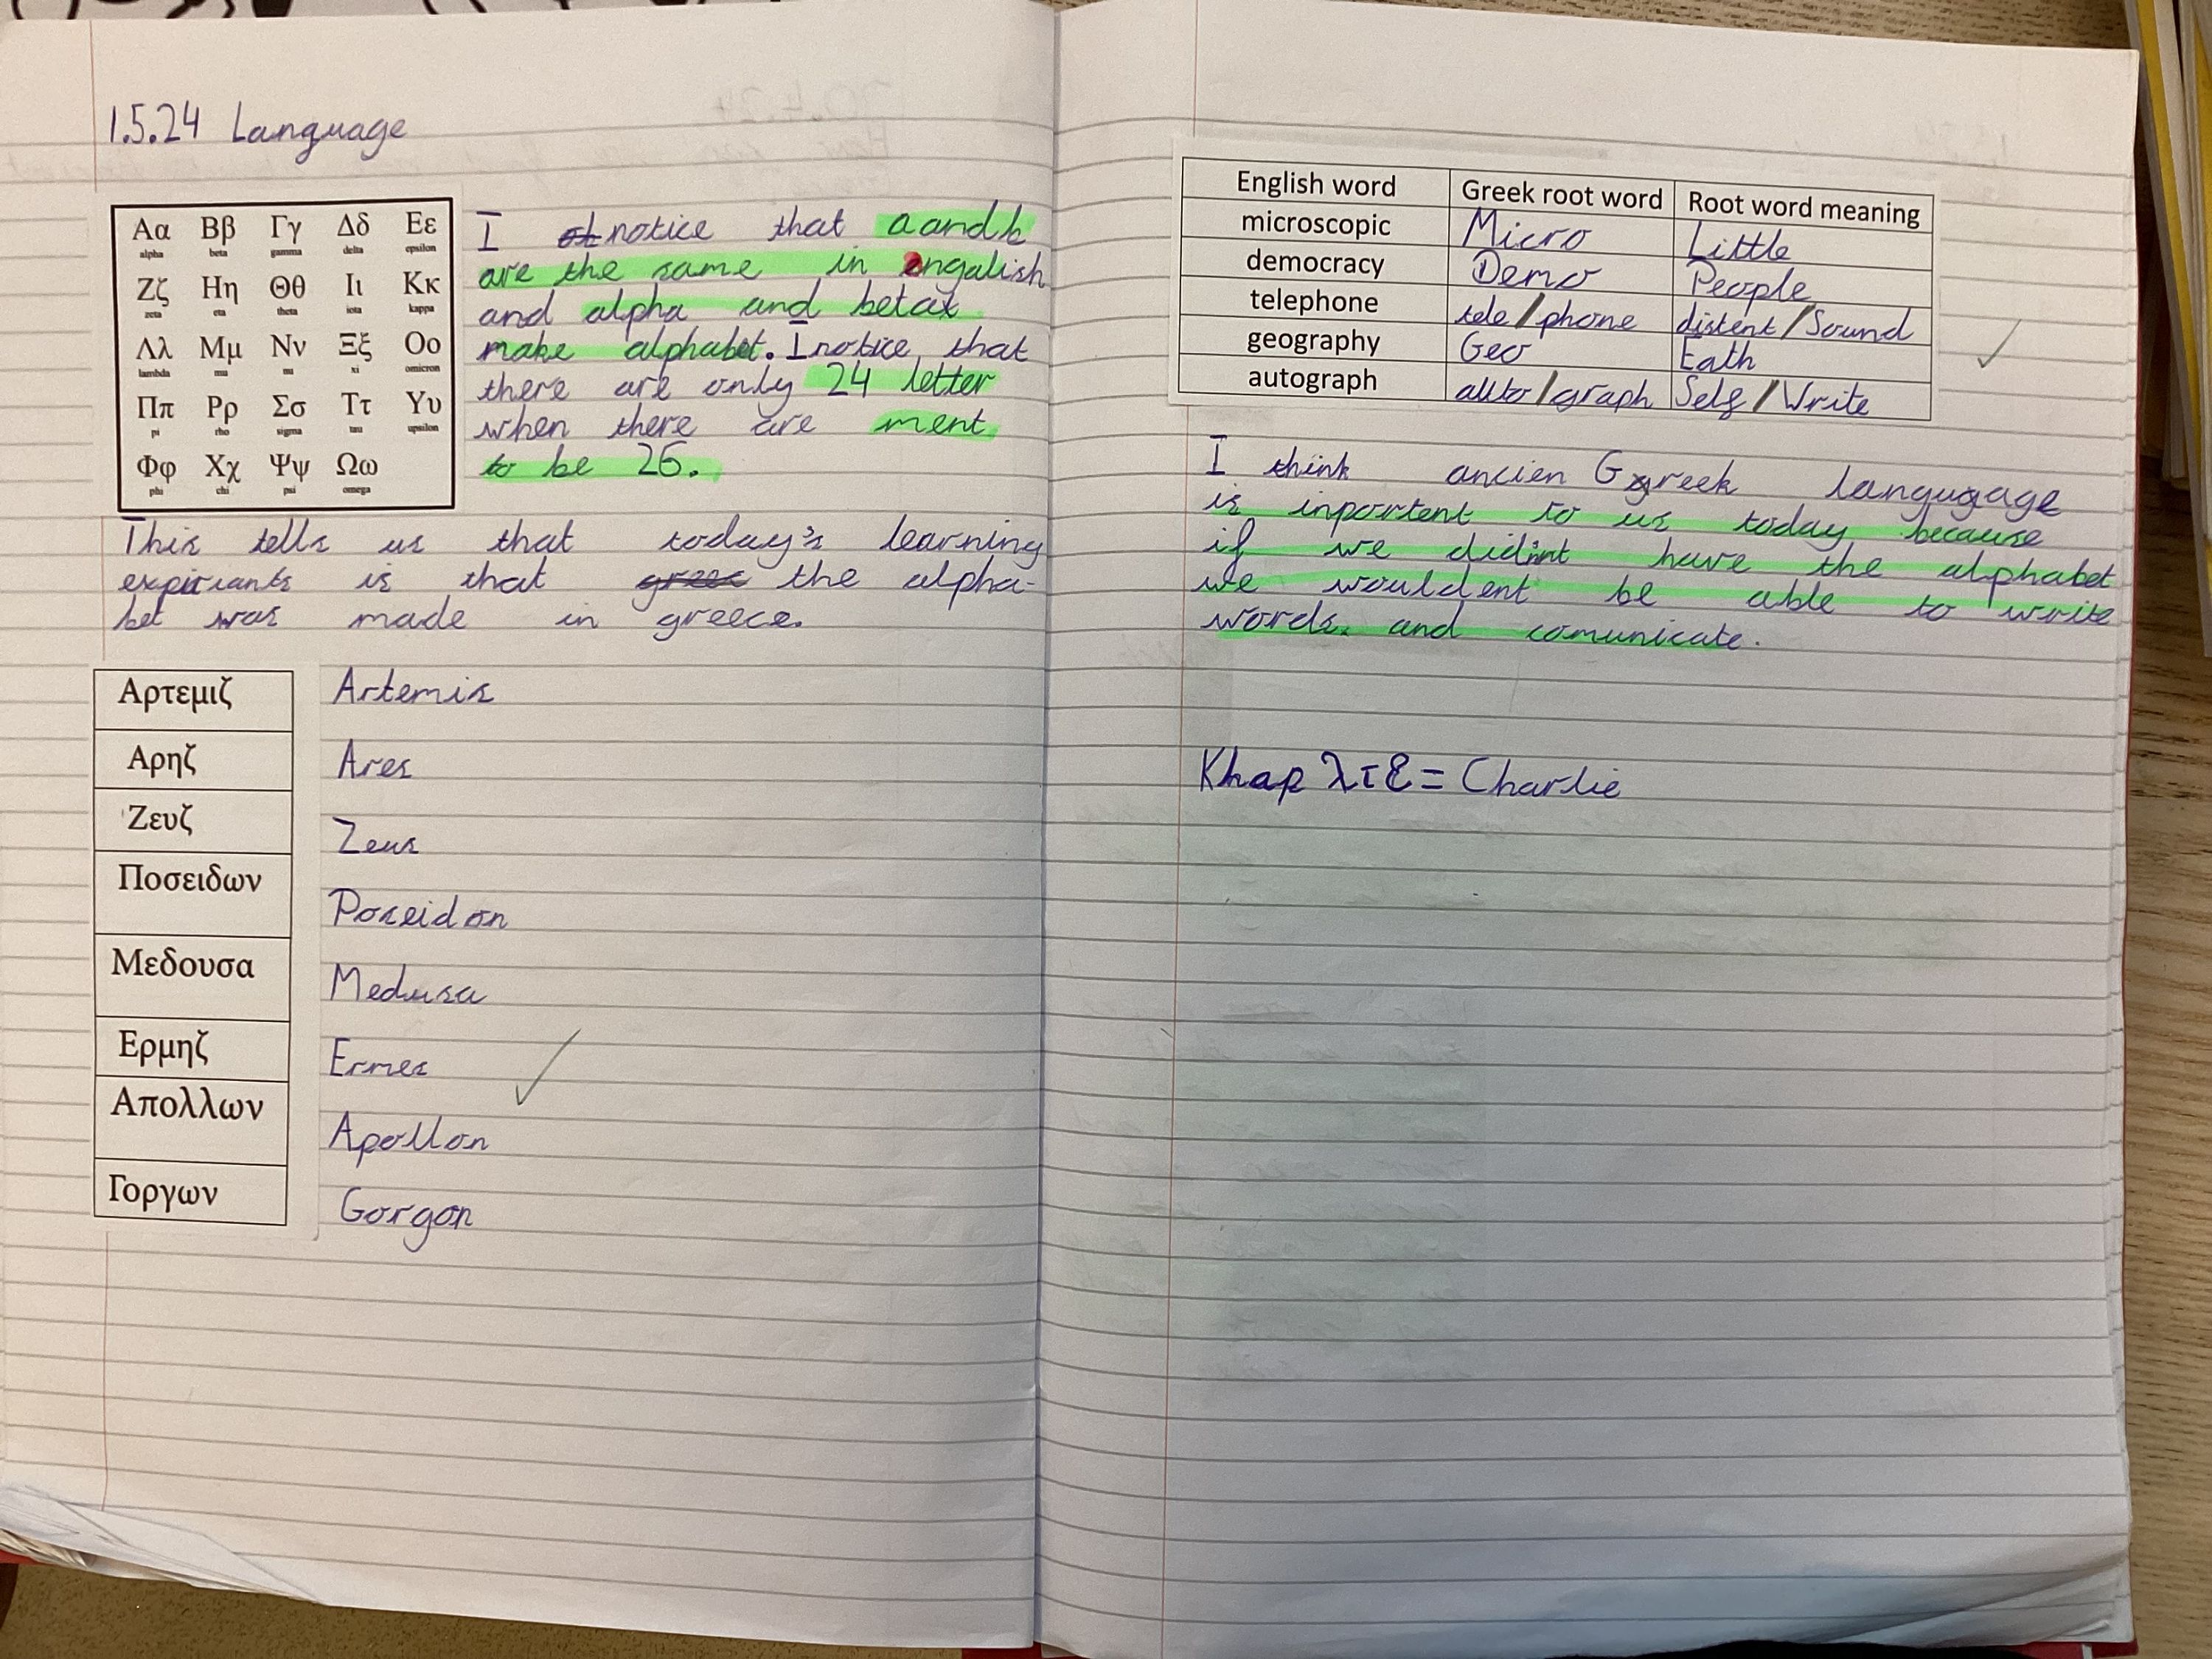 1.5.24 Language
Αα Ββ Γγ Δδ Εε
alpha beta gamma delta epsilon
Ζζ Ηη Θθ Ιι Κκ
zeta eta theta iota kappa
Λλ Μμ Νν Ξξ Οο
lambda mu nu xi omicron
Ππ Ρρ Σσ Ττ Υυ
pi rho sigma tau upsilon
Φφ Χχ Ψψ Ωω
phi chi psi omega
I notice that a and k
are the same in engalish
and alpha and betax
make alphabet. I notice that
there are only 24 letter
when there are ment
to be 26.
This tells us that today's learning
expiriants is that greec the alpha-
bet was made in greece.
Αρτεμιζ Artemis
Αρηζ Ares
Ζευζ Zeus
Ποσειδων Poseidon
Μεδουσα Medusa
Ερμηζ Ermes
Απολλων Apollon
Γοργων Gorgon
English word Greek root word Root word meaning
microscopic Micro Little
democracy Demo People
telephone tele/phone distent/Sound
geography Geo Eath
autograph auto/graph Self/Write
I think ancien Greek langugage
is inportent to us today because
if we didint have the alphabet
we wouldent be able to write
words. and comunicate.
Κhαρ λτε = Charlie